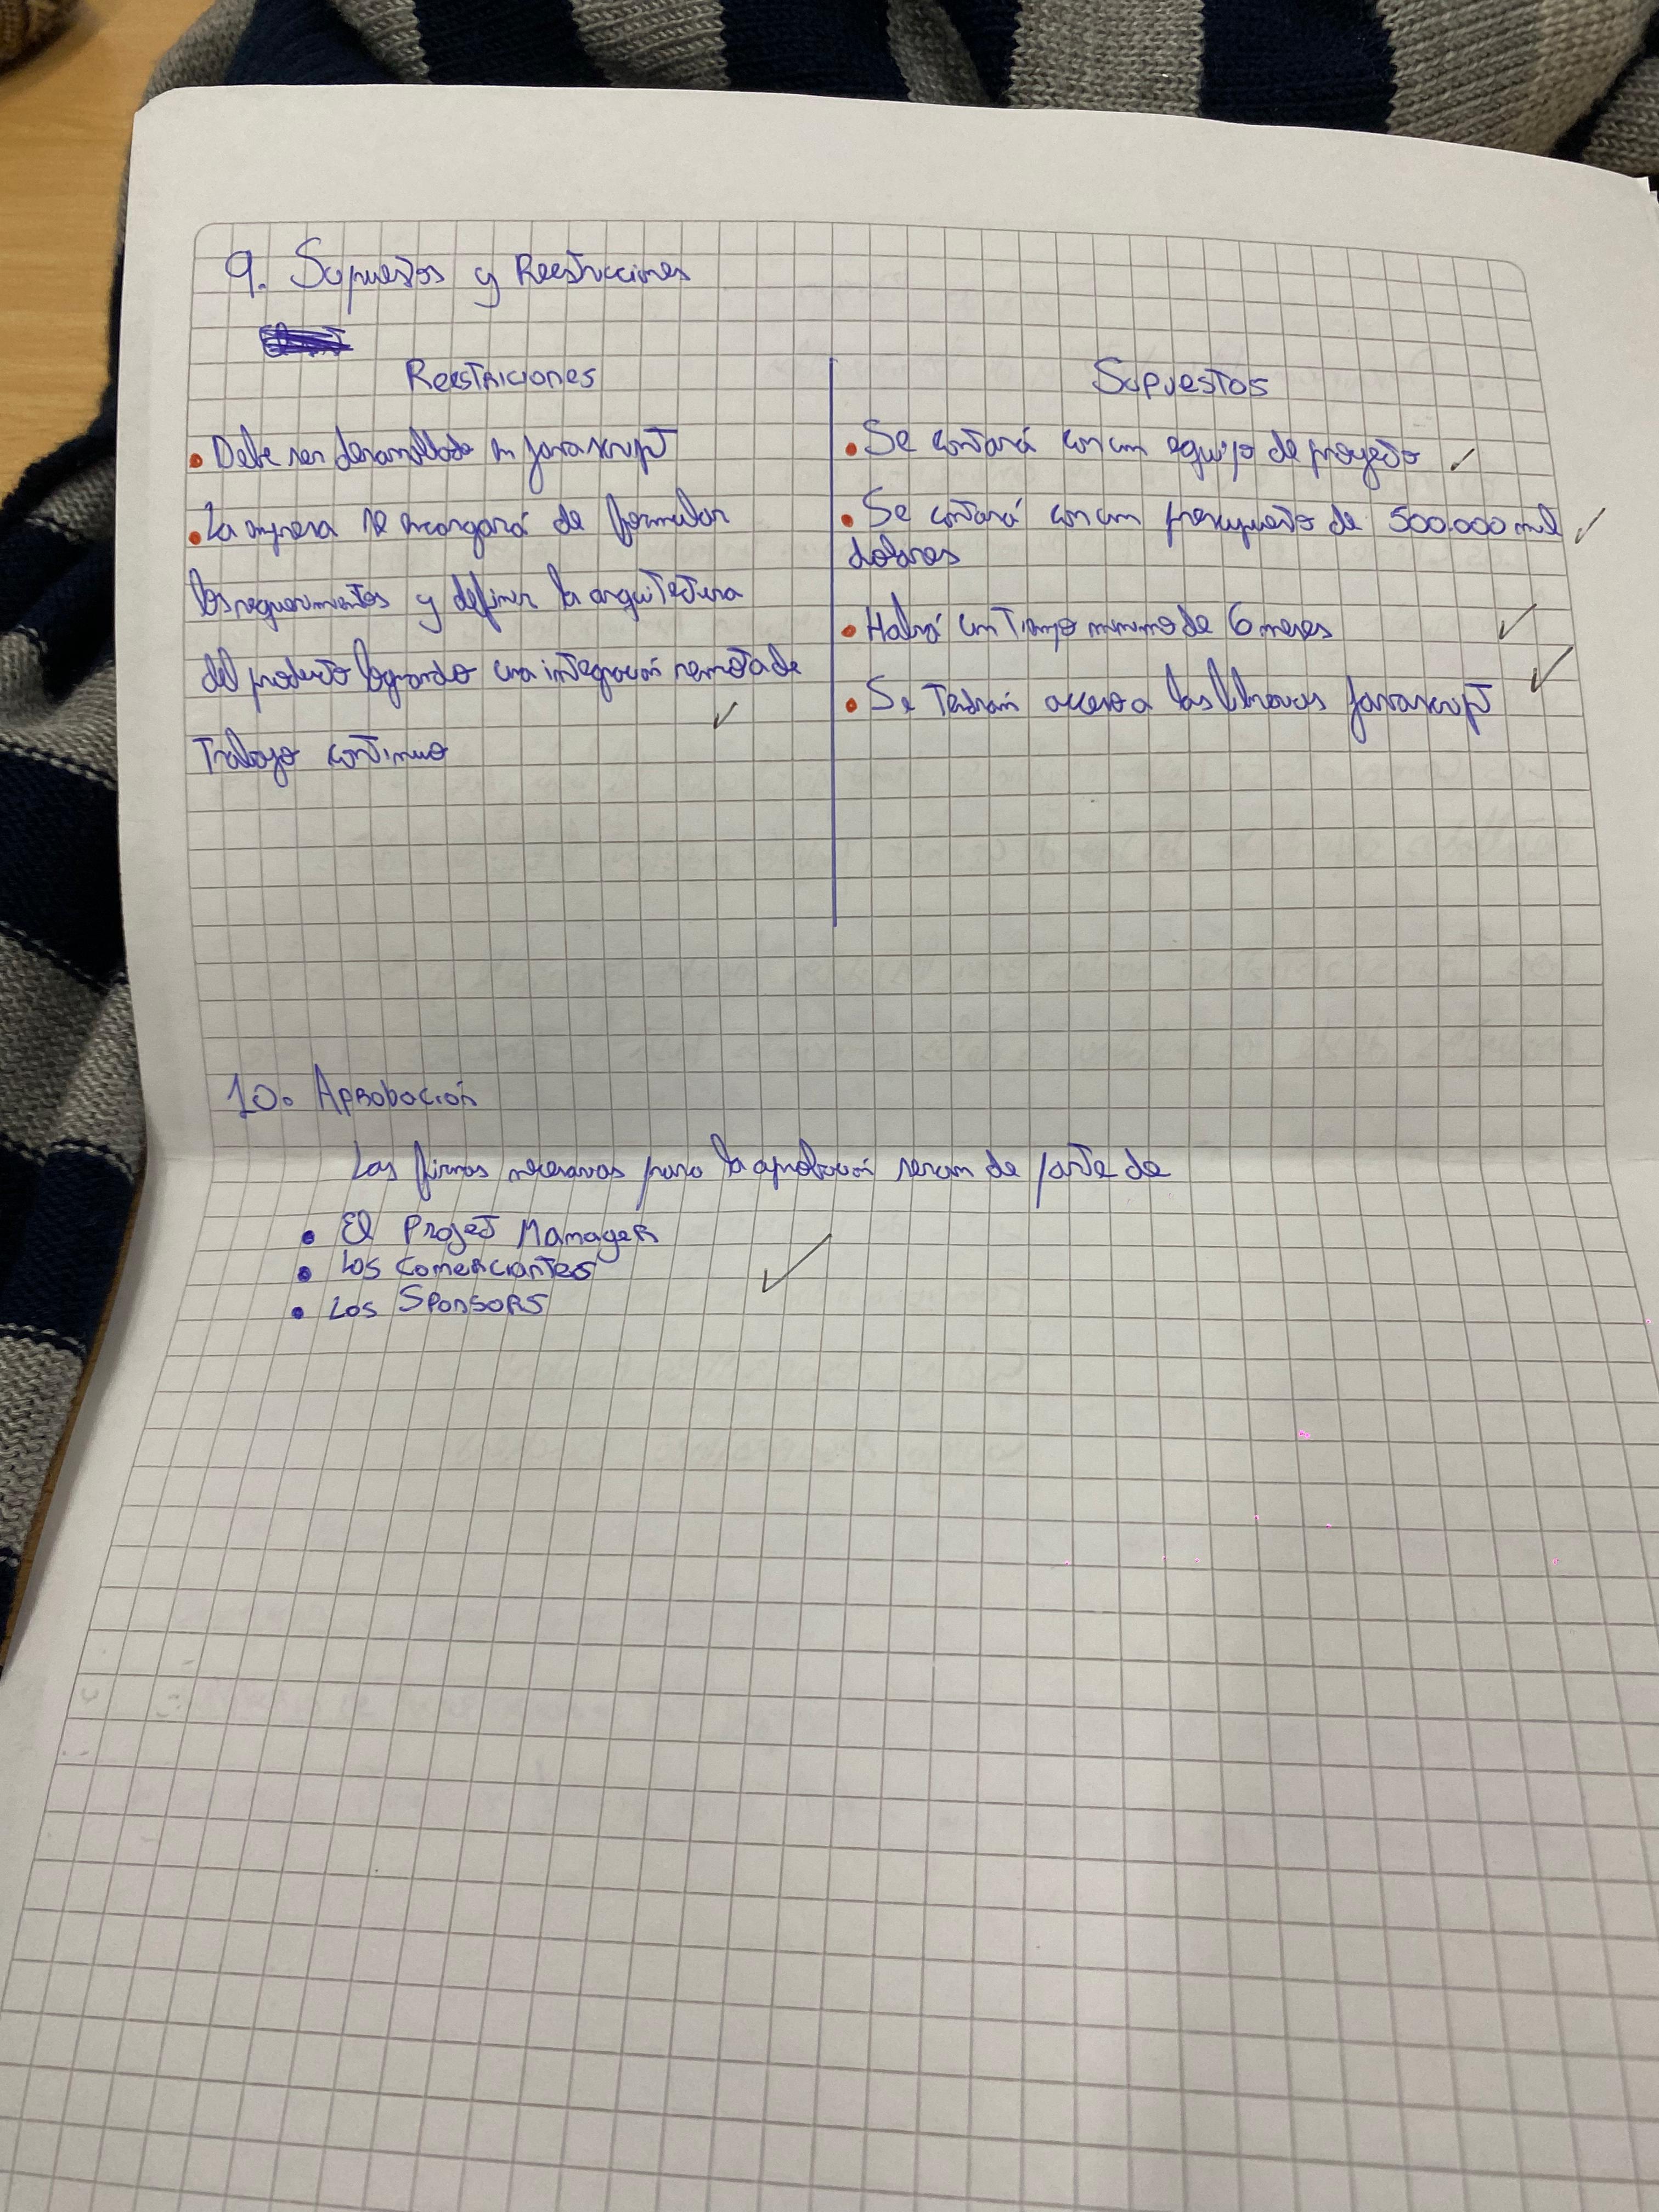 9. Supuestos y Reestricciones
Reestriciones
• Debe ser desarrollado en javascript
• La empresa se encargará de formular
los requerimientos y definir la arquitectura
del producto logrando una integración remota de
Trabajo continuo
Supuestos
• Se contará con un equipo de proyecto
• Se contará con un presupuesto de 500.000 mil
dolares
• Habrá un Tiempo minimo de 6 meses
• Se Tendrán acceso a las librerias javascript
10. Aprobación
Las firmas necesarias para la aprobación seran de parte de
• El Projet Manager
• Los comerciantes
• Los Sponsors